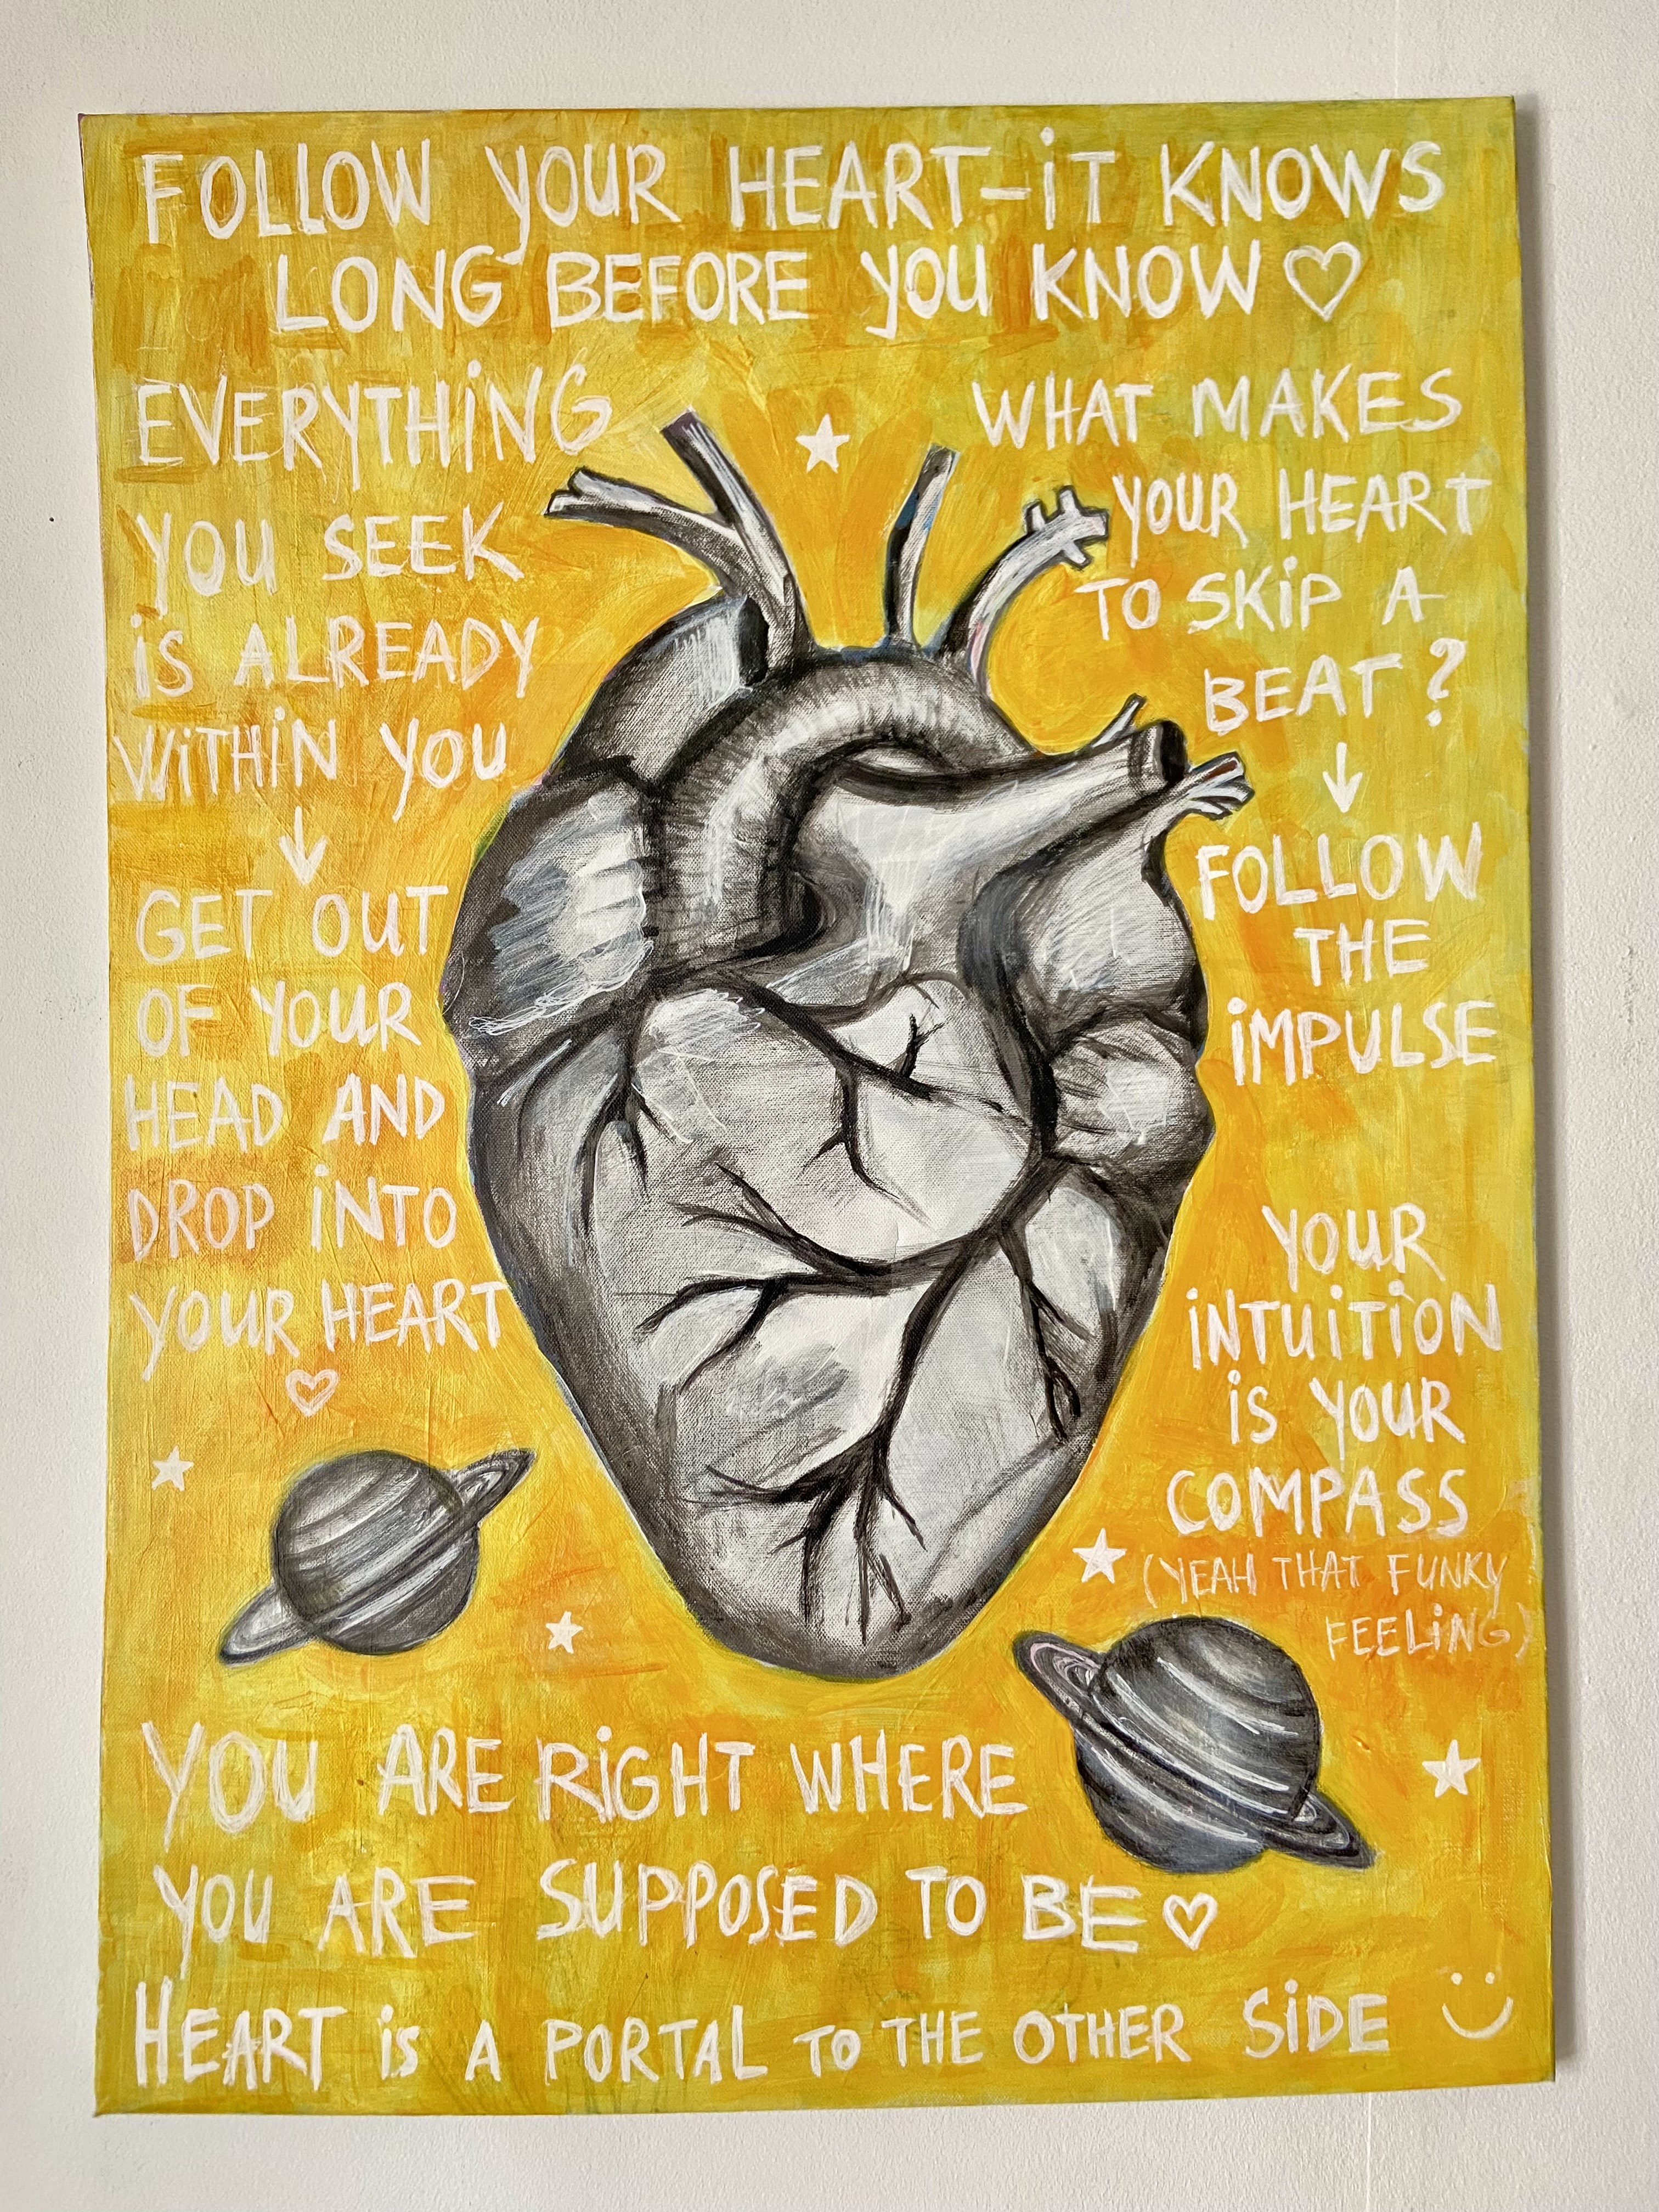 FOLLOW YOUR HEART-iT KNOWS
LONG BEFORE YOU KNOW♡
EVERYTHiNG
YOU SEEK
iS ALREADY
WiTHiN YOU
↓
GET OUT
OF YOUR
HEAD AND
DROP iNTO
YOUR HEART
♡
WHAT MAKES
YOUR HEART
TO SKiP A
BEAT?
↓
FOLLOW
THE
iMPULSE
YOUR
iNTUiTiON
iS YOUR
COMPASS
(YEAH THAT FUNKY
FEELiNG)
YOU ARE RiGHT WHERE
YOU ARE SUPPOSED TO BE♡
HEART iS A PORTAL TO THE OTHER SiDE